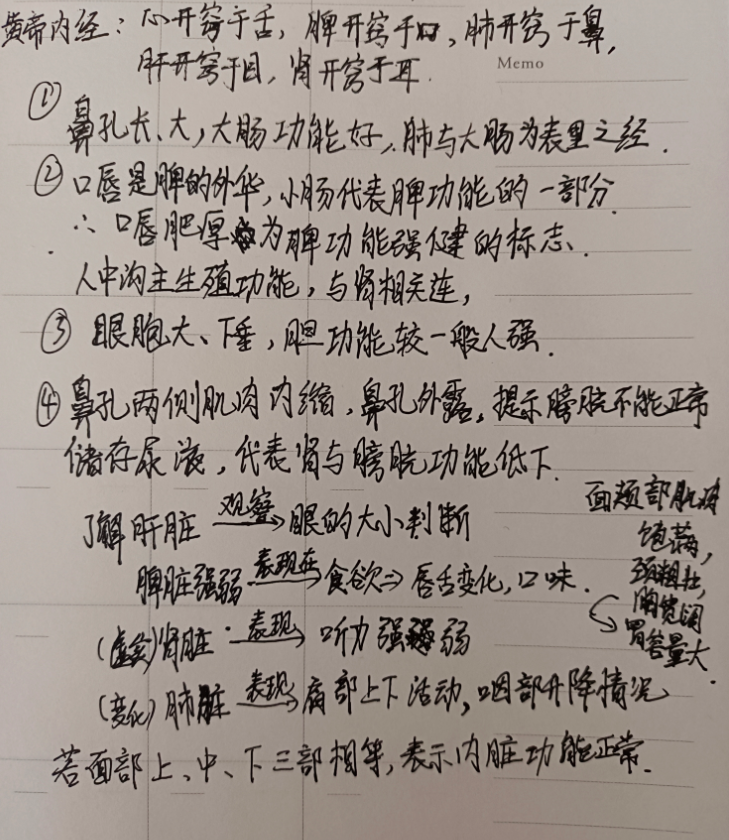 黄帝内经：心开窍于舌，脾开窍于口，肺开窍于鼻，
肝开窍于目，肾开窍于耳．
Memo
① 鼻孔长、大，大肠功能好，肺与大肠为表里之经．
② 口唇是脾的外华，小肠代表脾功能的一部分．
∴ 口唇肥厚为脾功能强健的标志．
人中沟主生殖功能，与肾相关连，
③ 眼胞大、下垂，胆功能较一般人强．
④ 鼻孔两侧肌肉内缩，鼻孔外露，提示膀胱不能正常
储存尿液，代表肾与膀胱功能低下．
了解肝脏 观察→ 眼的大小判断
脾脏强弱 表现在→ 食欲⇒唇舌变化，口味．
(虚实)肾脏 表现→ 听力强弱
(变化)肺脏 表现→ 肩部上下活动，咽部升降情况
面颊部肌肉
饱满，
颈粗壮，
胸宽阔
胃容量大．
若面部上、中、下三部相等，表示内脏功能正常．